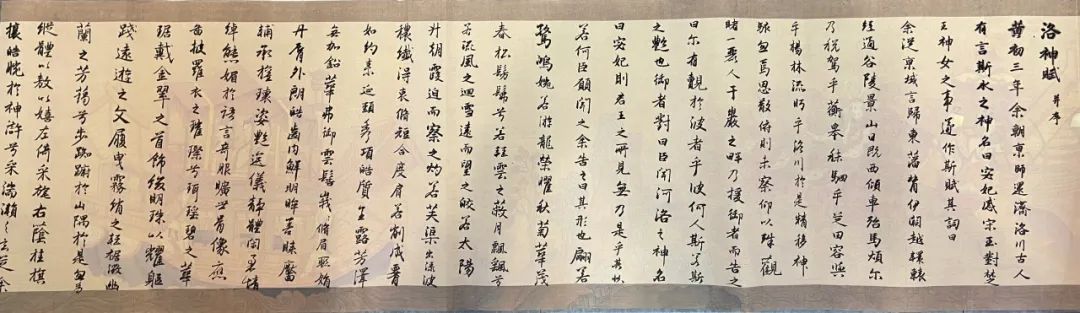 洛神賦 并序
黄初三年余朝京師還濟洛川古人
有言斯水之神名曰宓妃感宋玉對楚
王神女之事遂作斯賦其詞曰
余從京域言歸東藩背伊闕越轘轅
經通谷陵景山日既西傾車殆馬煩尔
乃税駕乎蘅皋秣駟乎芝田容與
乎楊林流眄乎洛川於是精移神
駭忽焉思散俯則未察仰以殊觀
睹一麗人于巖之畔乃援御者而告之
曰尔有覿於彼者乎彼何人斯若斯
之艷也御者對曰臣聞河洛之神名
曰宓妃則君王之所見無乃是乎其狀
若何臣願聞之余告之曰其形也翩若
驚鴻婉若游龍榮曜秋菊華茂
春松髣髴兮若輕雲之蔽月飄飄兮
若流風之迴雪遠而望之皎若太陽
升朝霞迫而察之灼若芙渠出渌波
穠纖得衷脩短合度肩若削成腰
如約素延頸秀項皓質呈露芳澤
無加鉛華弗御雲髻峩峩脩眉聯娟
丹脣外朗皓齒内鮮明眸善睞靨
輔承權瓌姿艷逸儀靜體閑柔情
綽態媚於語言奇服曠世骨像應
啚披羅衣之璀璨兮珥瑶碧之華
琚戴金翠之首飾綴明珠以耀軀
踐遠遊之文履曳霧綃之輕裾微幽
蘭之芳藹兮步踟蹰於山隅於是忽焉
縱體以敖以嬉左倚采旄右蔭桂旗
攘皓腕於神滸兮采湍瀨之玄芝余